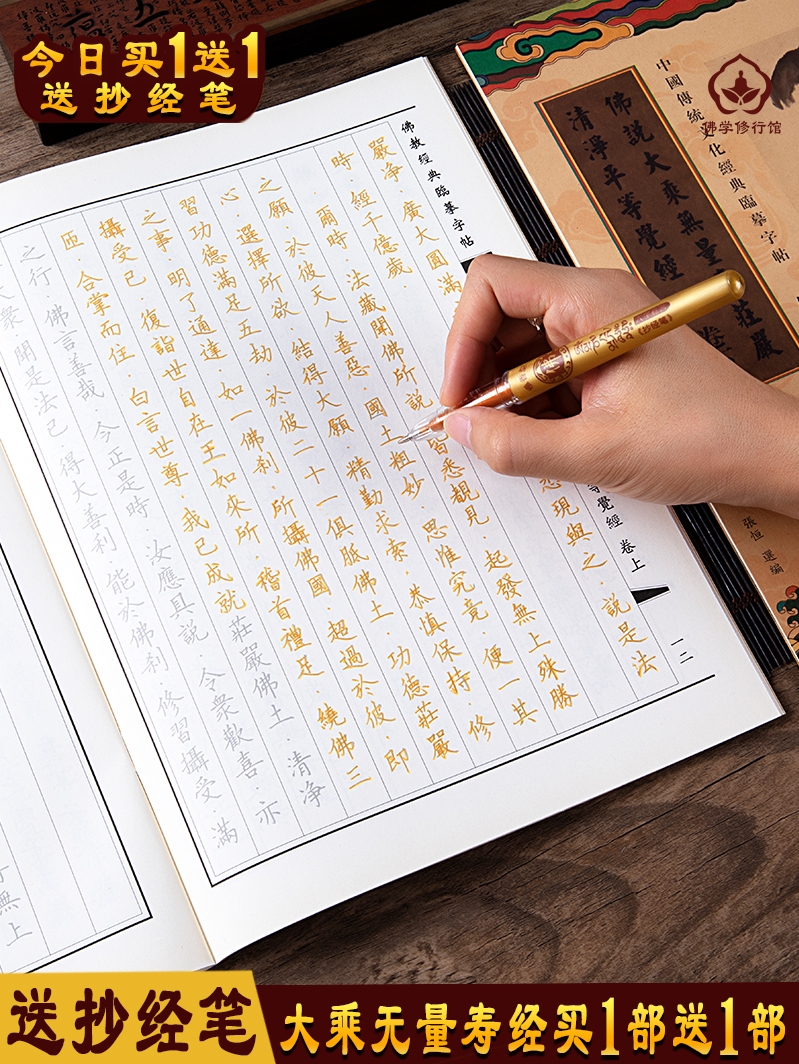 今日买1送1
送抄经笔
佛学修行馆
中國傳統文化經典臨摹字帖
佛說大乘無量
莊嚴
清淨平等覺經
卷
張恒 選編
佛教經典臨摹字帖
等覺經 卷上
一二
嚴净．廣大圓滿
悉現與之．說是法
時．經千億歲．
爾時．法藏聞佛所說．皆悉覩見．起發無上殊勝
之願．於彼天人善惡．國土粗妙．思惟究竟．便一其
心．選擇所欲．結得大願．精勤求索．恭慎保持．修
習功德滿足五劫．於彼二十一俱胝佛土．功德莊嚴
之事．明了通達．如一佛刹．所攝佛國．超過於彼．即
攝受已．復詣世自在王如來所．稽首禮足．繞佛三
匝．合掌而住．白言世尊．我已成就莊嚴佛土．清净
之行．佛言善哉．今正是時．汝應具說．令衆歡喜．亦
大衆．聞是法已．得大善利．能於佛刹．修習攝受．滿
無上
送抄经笔
大乘无量寿经买1部送1部